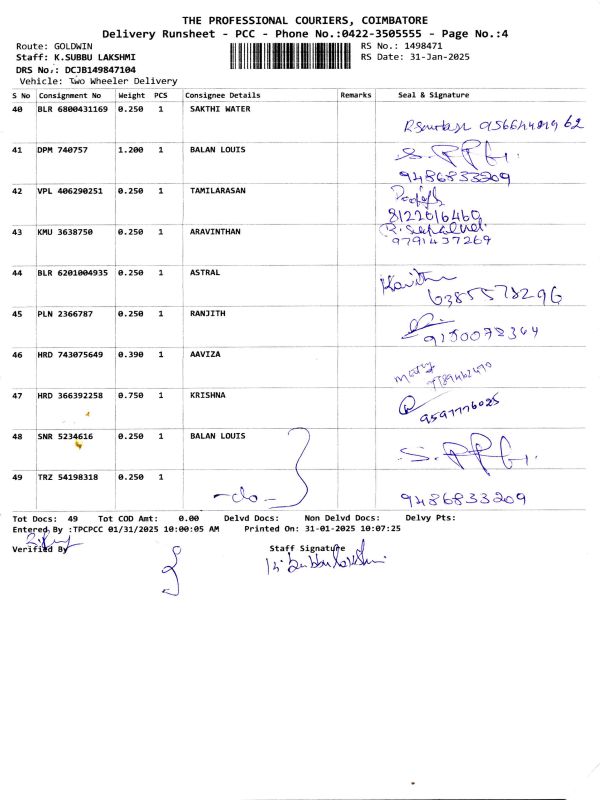 THE PROFESSIONAL COURIERS, COIMBATORE
Delivery Runsheet - PCC - Phone No.:0422-3505555 - Page No.:4
Route: GOLDWIN
RS No.: 1498471
Staff: K.SUBBU LAKSHMI
RS Date: 31-Jan-2025
DRS No.: DCJB149847104
Vehicle: Two Wheeler Delivery
S No Consignment No Weight PCS Consignee Details Remarks Seal & Signature
40 BLR 6800431169 0.250 1 SAKTHI WATER
41 DPM 740757 1.200 1 BALAN LOUIS
9486833209
42 VPL 406290251 0.250 1 TAMILARASAN
8122616460
43 KMU 3638750 0.250 1 ARAVINTHAN
9791437269
44 BLR 6201004935 0.250 1 ASTRAL
Kavitha
6385578296
45 PLN 2366787 0.250 1 RANJITH
9150072364
46 HRD 743075649 0.390 1 AAVIZA
47 HRD 366392258 0.750 1 KRISHNA
9597776025
48 SNR 5234616 0.250 1 BALAN LOUIS
49 TRZ 54198318 0.250 1
-do-
9486833209
Tot Docs: 49 Tot COD Amt: 0.00 Delvd Docs: Non Delvd Docs: Delvy Pts:
Entered By :TPCPCC 01/31/2025 10:00:05 AM Printed On: 31-01-2025 10:07:25
Verified By Staff Signature
K. Subbulakshmi